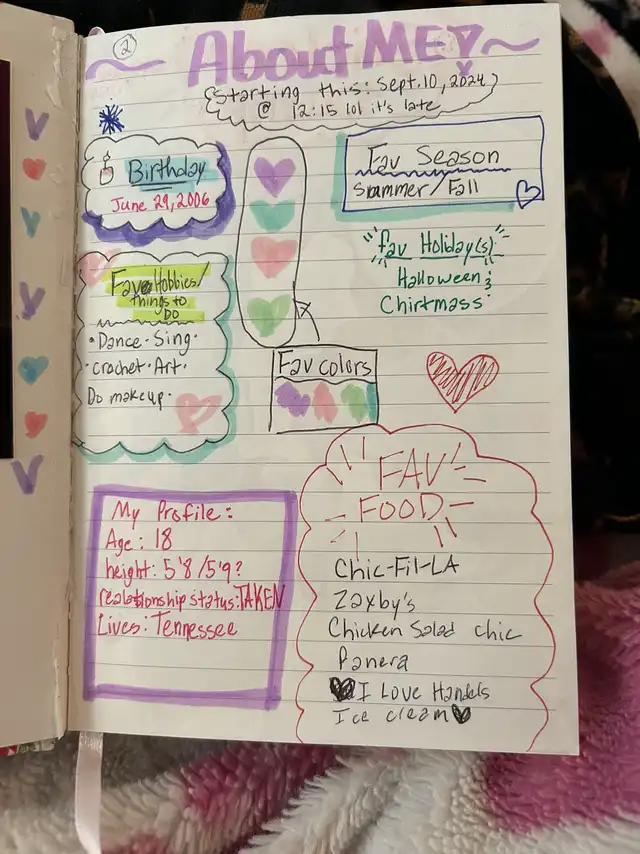 2
About ME!
Starting this: Sept. 10, 2024
@ 12:15 lol it's late
Birthday
June 29, 2006
Fav Season
Summer/Fall
fav Holiday(s)
Halloween &
Chirtmass
Fav Hobbies/
things to
DO
• Dance • Sing •
• crochet • Art •
Do makeup •
Fav colors
My Profile:
Age: 18
height: 5'8/5'9?
realationship status: TAKEN
Lives: Tennessee
FAV
FOOD
Chic-Fil-LA
Zaxby's
Chicken Salad chic
Panera
I Love Handels
Ice cream